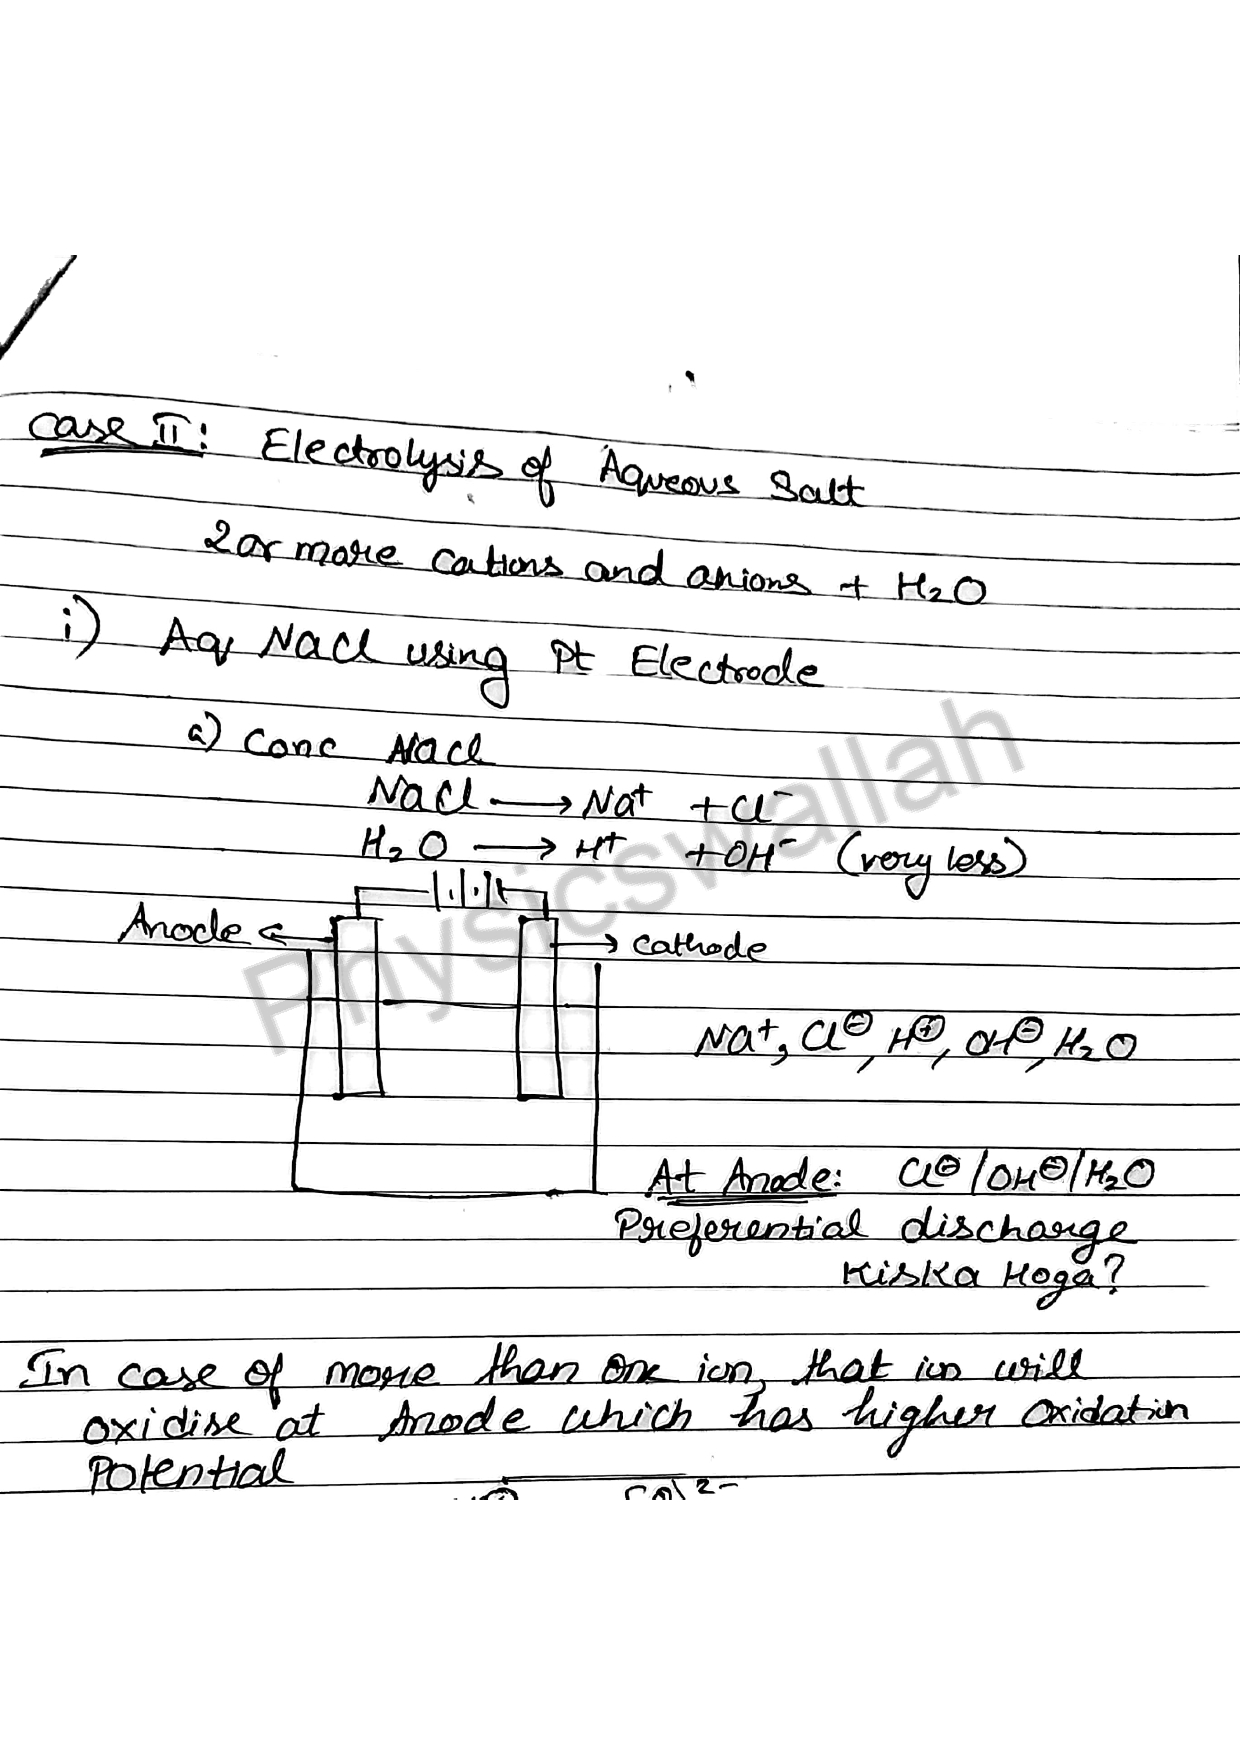 Case II: Electrolysis of Aqueous Salt
2 or more cations and anions + H₂O
i) Aq NaCl using Pt Electrode
a) Conc NaCl
NaCl ⟶ Na⁺ + Cl⁻
H₂O ⟶ H⁺ + OH⁻ (very less)
Anode ← → Cathode
Na⁺, Cl⊖, H⊕, OH⊖, H₂O
At Anode: Cl⊖ / OH⊖ / H₂O
Preferential discharge
Kiska Hoga?
In case of more than one ion, that ion will
oxidise at Anode which has higher oxidation
Potential
Physicswallah